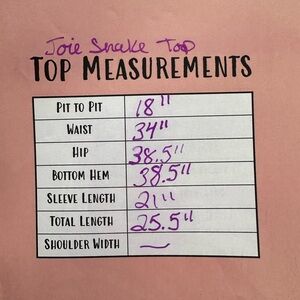 Joie Snake Top
TOP MEASUREMENTS
PIT TO PIT 18"
WAIST 34"
HIP 38.5"
BOTTOM HEM 38.5"
SLEEVE LENGTH 21"
TOTAL LENGTH 25.5"
SHOULDER WIDTH —